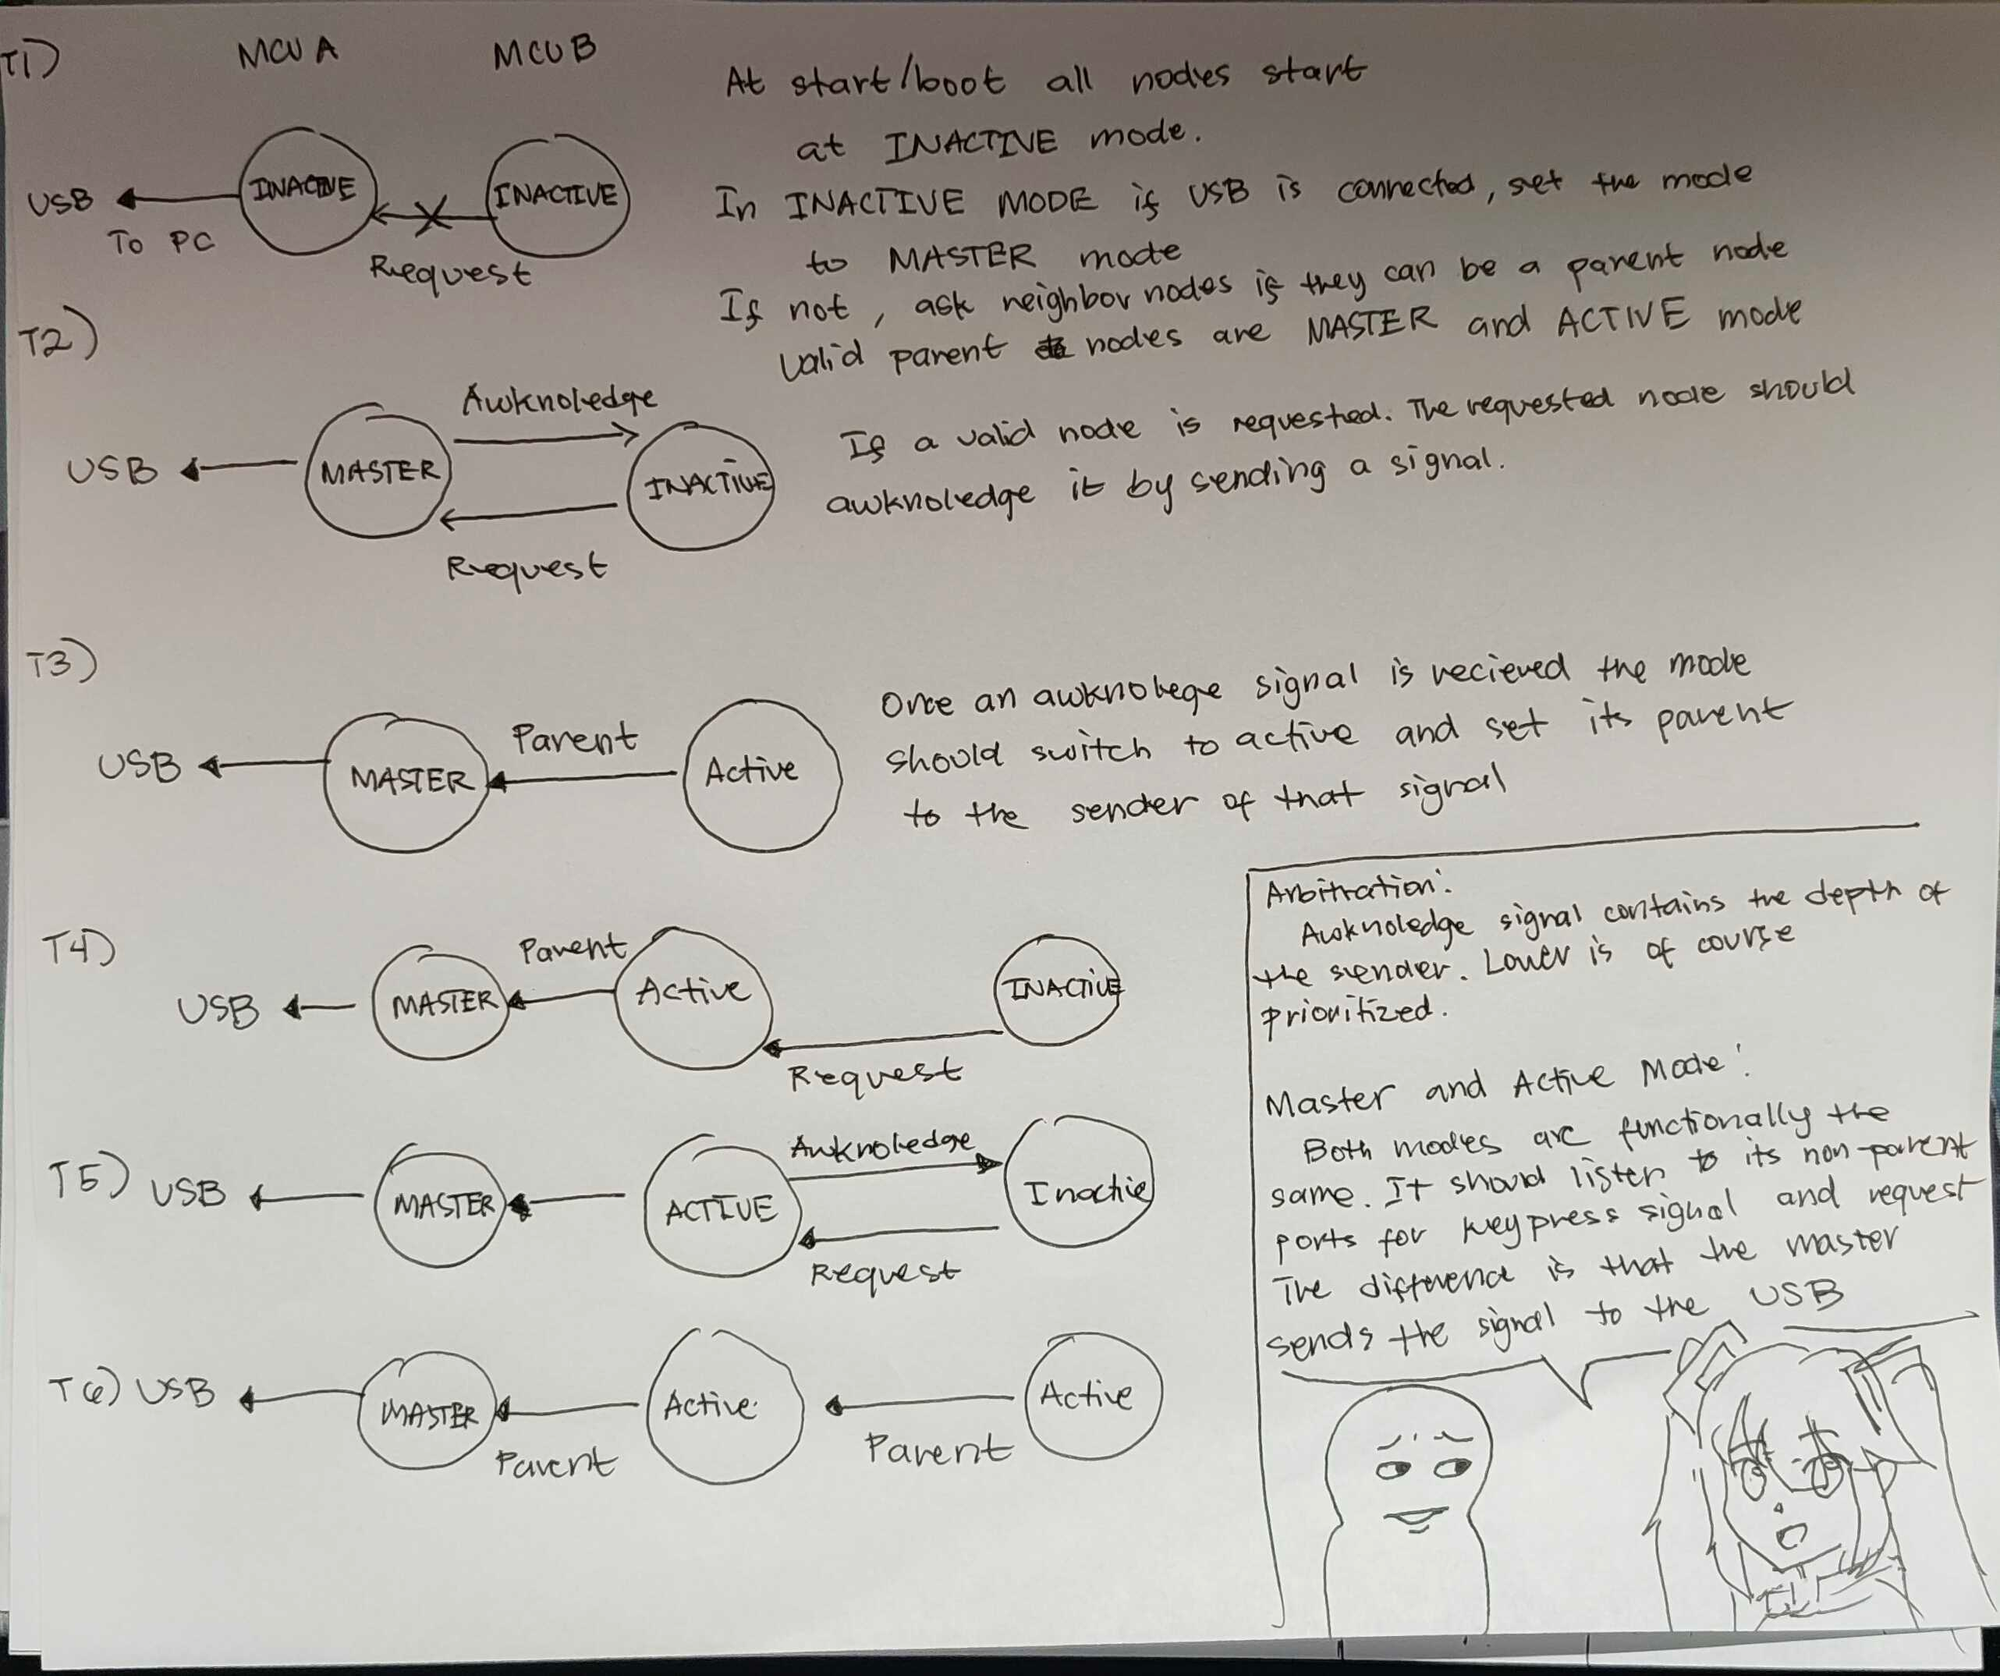 T1) MCU A MCU B
At start/boot all nodes start
at INACTIVE mode.
In INACTIVE MODE if USB is connected, set the mode
to MASTER mode
If not, ask neighbor nodes if they can be a parent node
valid parent nodes are MASTER and ACTIVE mode
USB
To PC
INACTIVE
INACTIVE
Request
T2)
Awknoledge
USB
MASTER
INACTIVE
Request
If a valid node is requested. The requested node should
awknoledge it by sending a signal.
T3)
USB
MASTER
Parent
Active
Once an awknolege signal is recieved the mode
should switch to active and set its parent
to the sender of that signal
T4)
USB
MASTER
Parent
Active
INACTIVE
Request
T5) USB
MASTER
ACTIVE
Awknoledge
Inactie
Request
T6) USB
MASTER
Parent
Active
Parent
Active
Arbitration:
Awknoledge signal contains the depth of
the sender. Lower is of course
prioritized.
Master and Active Mode:
Both modes are functionally the
same. It should listen to its non-parent
ports for keypress signal and request
The difference is that the master
sends the signal to the USB